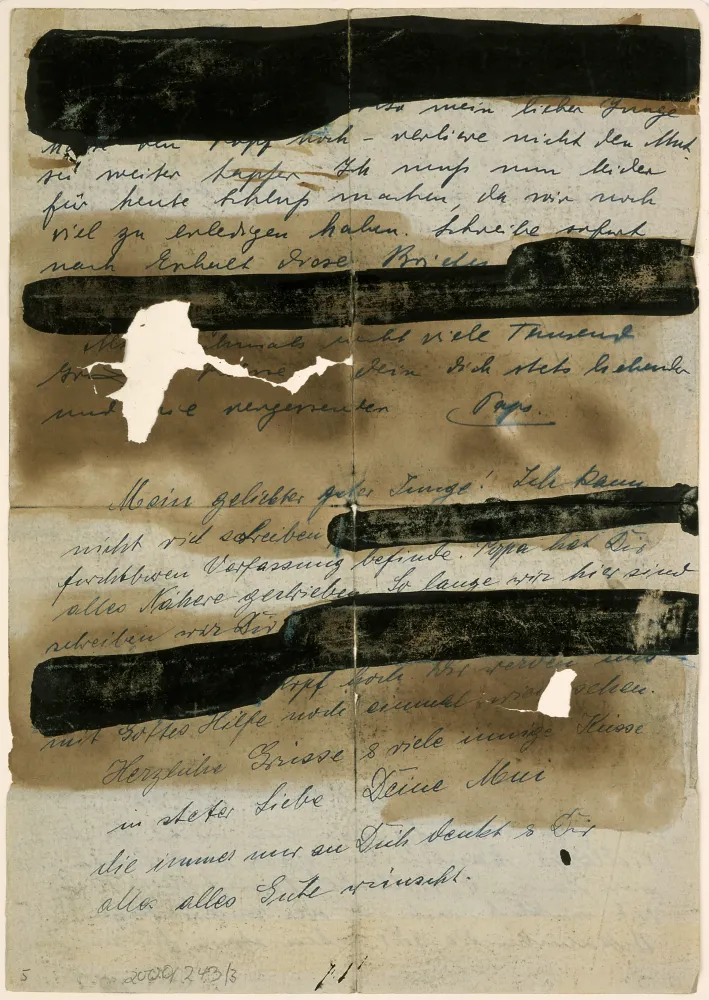 mein lieber Junge
den Kopf hoch – verliere nicht den Mut,
sei weiter tapfer. Ich muß nun leider
für heute Schluß machen, da wir noch
viel zu erledigen haben. Schreibe sofort
nach Erhalt diese Briefes
nicht viele Tausend
Dein Dich stets liebender
und nie vergessender Paps.
Mein geliebter guter Junge! Ich kann
nicht viel schreiben
furchtbaren Verfassung befinde. Papa hat Dir
alles Nähere geschrieben. So lange wir hier sind
schreiben wir Dir
Kopf hoch wir werden uns
mit Gottes Hilfe noch einmal wiedersehen.
Herzliche Grüsse & viele innige Küsse
in steter Liebe Deine Mui
die immer nur an Dich denkt & Dir
alles alles Gute wünscht.
5 2000/243/3